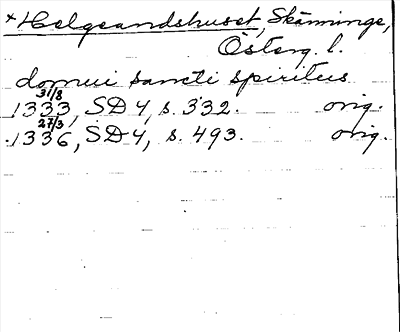 *Helgeandshuset, Skänninge,
Österg. l.
domui sancti spiritus
31/8
1333, SD 4, s. 332. orig.
27/3
1336, SD 4, s. 493. orig.